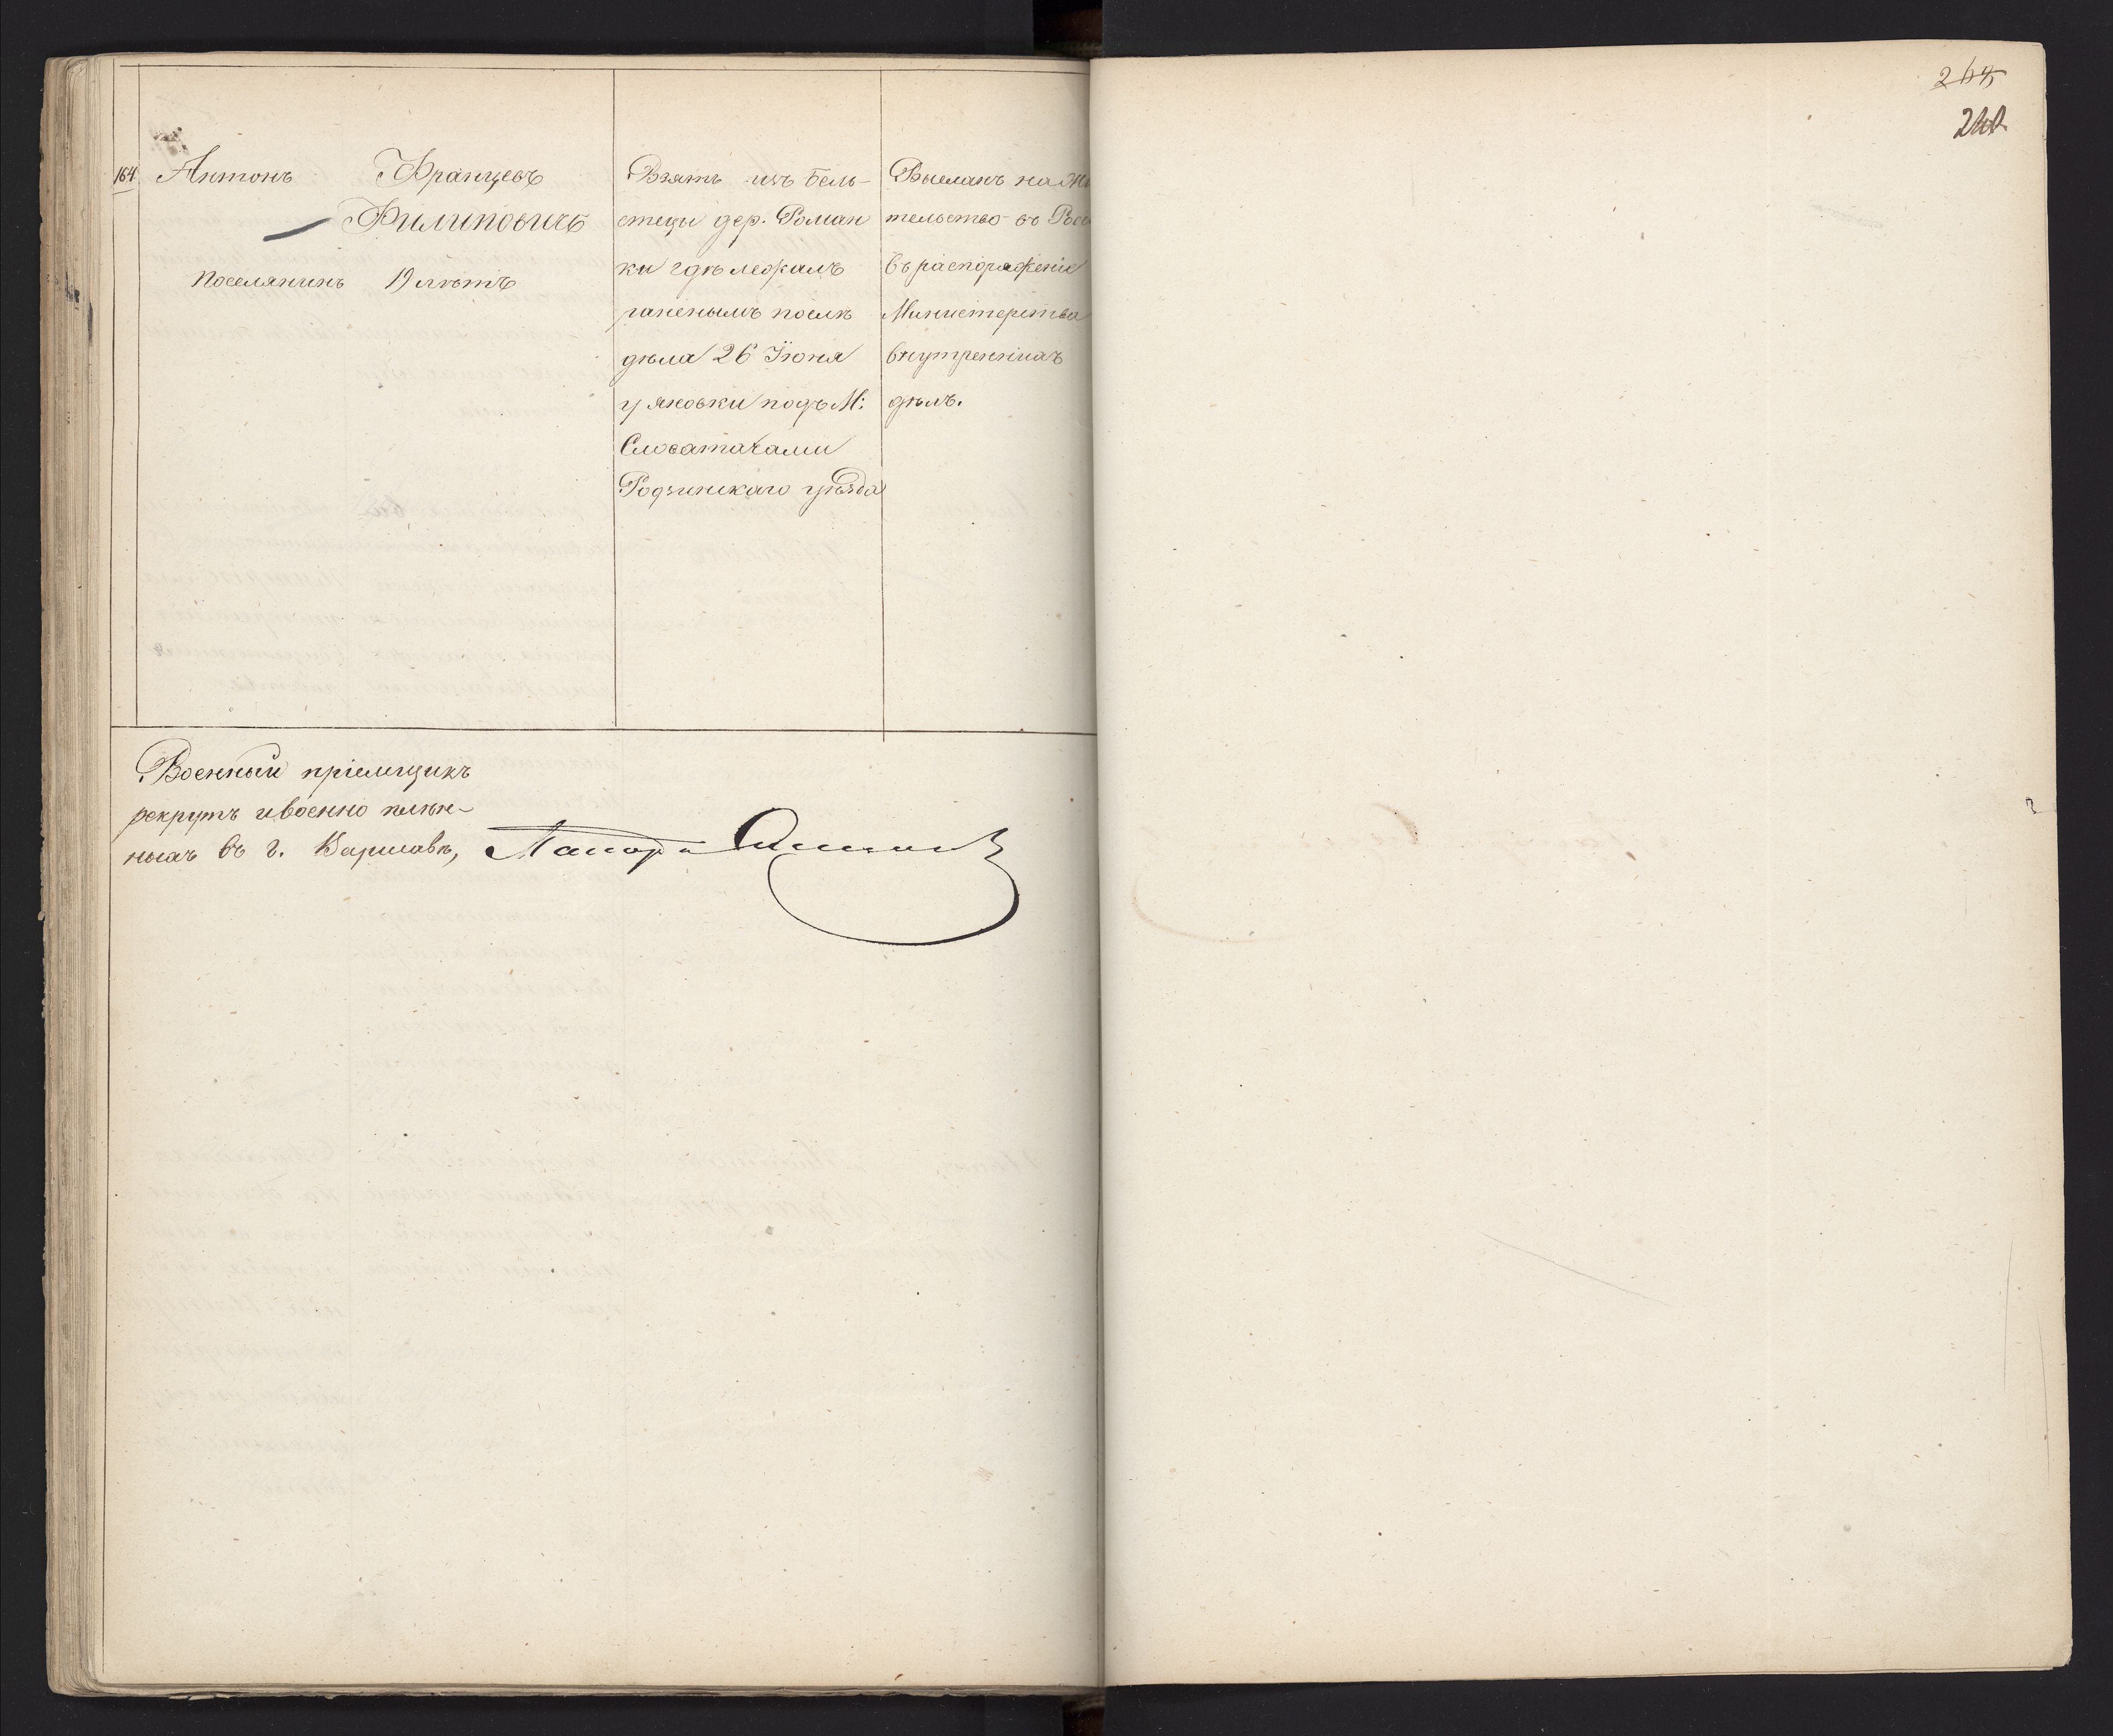 164 Антонъ Францевъ
Филиповичъ
Поселянинъ 19 лѣтъ
Взятъ изъ боль-
ницы дер. Роман
ки гдѣ лежалъ
раненымъ послѣ
дѣла 26 Іюня
у Яновки подъ М:
Словатичами
Радзинскаго уѣзда
Высланъ на жи
тельство въ Росс
въ распоряженіе
Министерства
внутреннихъ
дѣлъ.
Военный пріемщикъ
рекрутъ и военно плѣн-
ныхъ въ г. Варшавѣ, Маіоръ
265